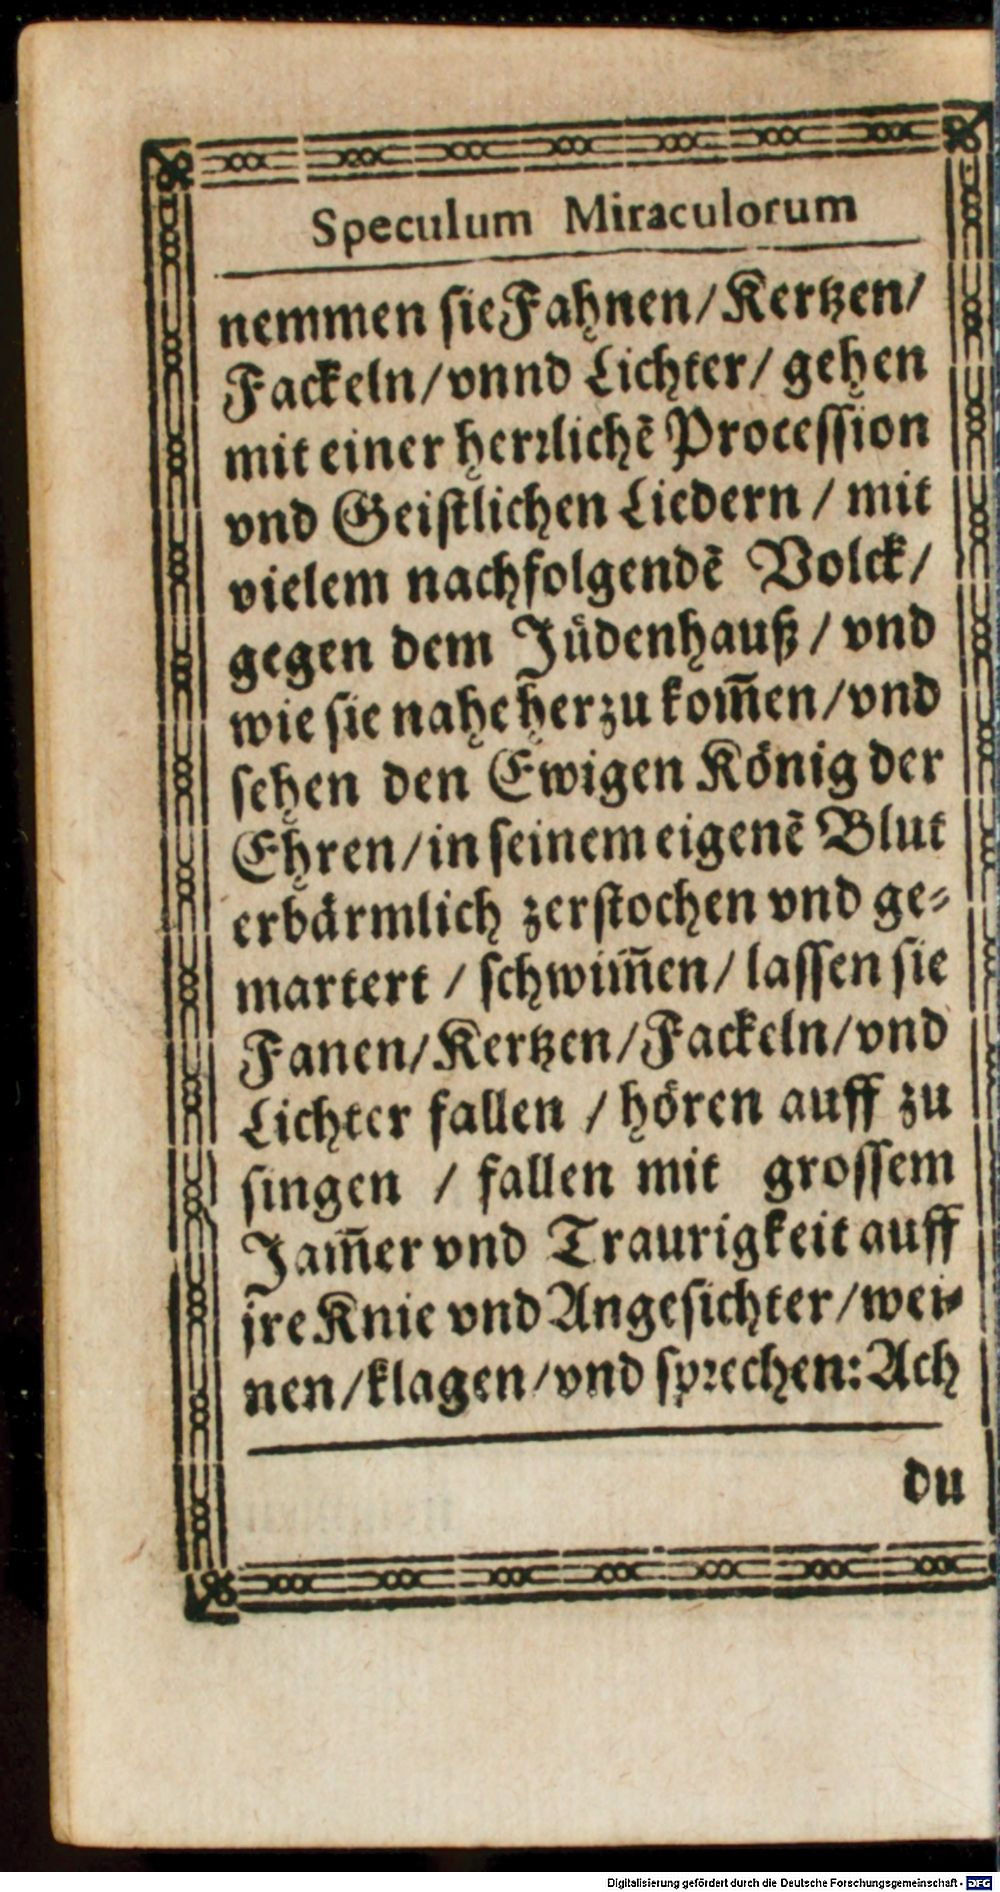 Speculum Miraculorum
nemmen sie Fahnen/ Kertzen/
Fackeln/ vnnd Lichter/ gehen
mit einer herrlichẽ Procession
vnd Geistlichen Liedern / mit
vielem nachfolgendẽ Volck/
gegen dem Jüdenhauß / vnd
wie sie nahe herzu kom̃en/ vnd
sehen den Ewigen König der
Ehren/ in seinem eigenẽ Blut
erbärmlich zerstochen vnd ge-
martert / schwim̃en/ lassen sie
Fanen/ Kertzen/ Fackeln/ vnd
Lichter fallen / hören auff zu
singen / fallen mit grossem
Jam̃er vnd Traurigkeit auff
jre Knie vnd Angesichter/ wei-
nen/ klagen/ vnd sprechen: Ach
du
Digitalisierung gefördert durch die Deutsche Forschungsgemeinschaft - DFG